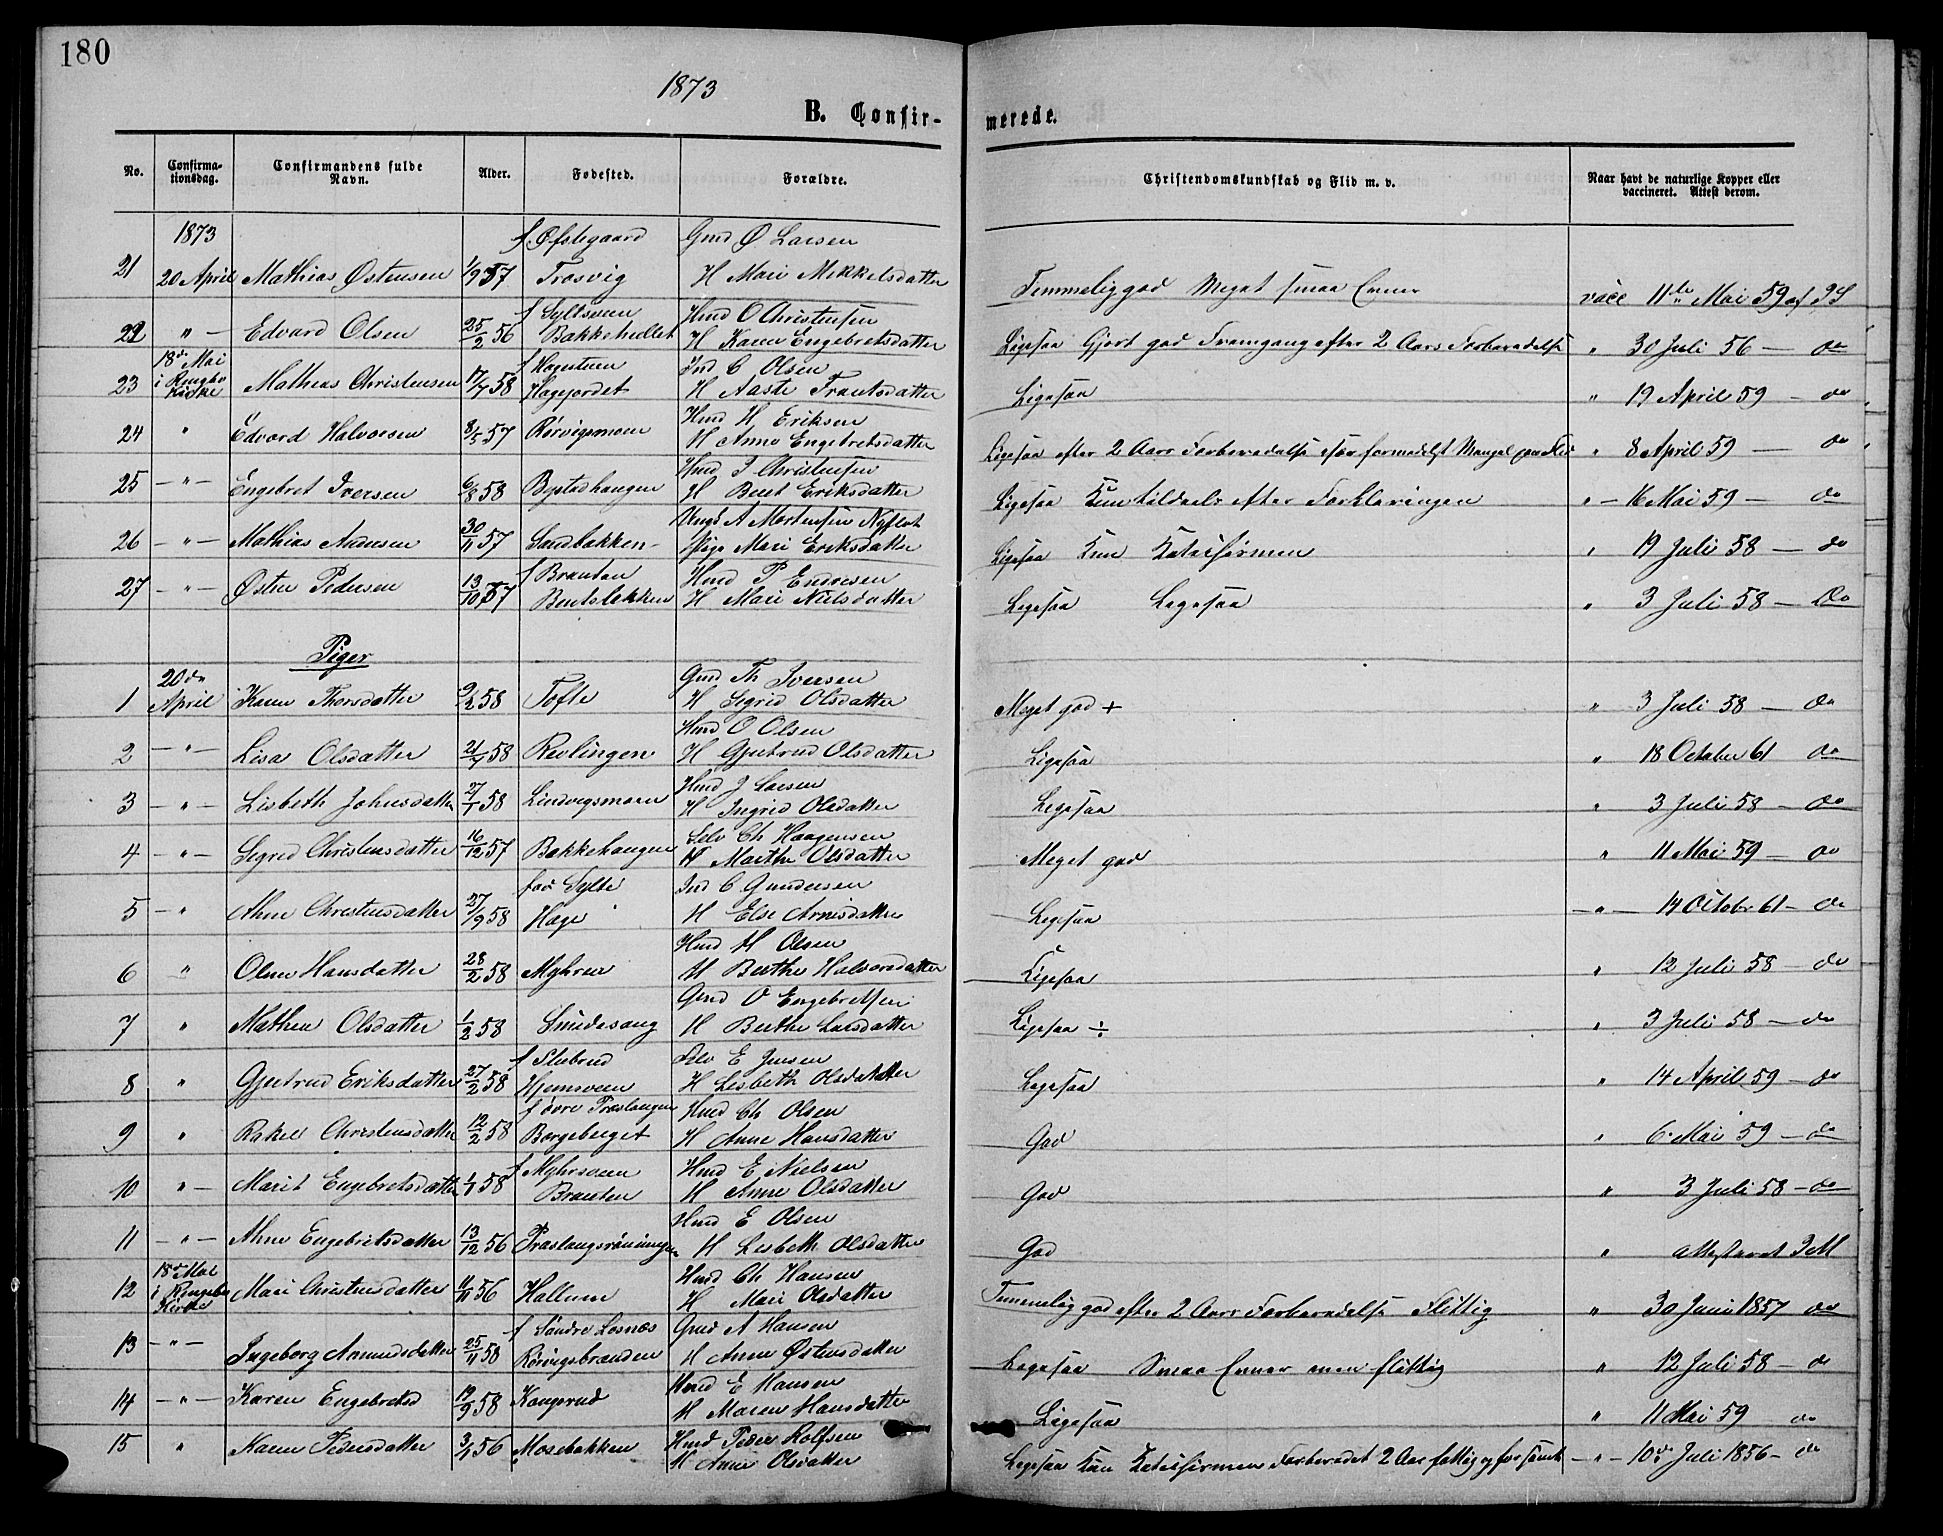 180
1873
B. Confirmerede.
No. Confirmationsdag. Confirmandens fulde Navn. Alder. Fødested. Forældre. Christendomskundskab og Flid m. v. Naar havt de naturlige Kopper eller vaccineret. Attest derom.
1873 f Øfstegaard Gmd Ø Larsen
21 20 April Mathias Østensen 1/9 57 Trosvig H Mari Mikkelsdatter Temmelig god Meget smaa Evner vacc 11te Mai 59 af
f Sylteveen Hmd O Christensen
22 " - Edvard Olsen 25/2 56 Bakkehellet H Karen Engebretsdatter Ligesaa Gjort god Fremgang efter 2 Aars Forberedelse " 30 Juli 56 - do
18de Mai Ind C Olsen
23 i Ringebo Kirke Mathias Christensen 17/7 58 Hagejordet H Aaste Frantsdatter Ligesaa " 19 April 59 - do
Hmd H Eriksen
24 " Edvard Halvorsen 8/5 57 Rørvigsmoen H Anne Engebretsdatter Ligesaa efter 2 Aars Forberedelse formedelst Mangel paa Flid " 8 April 59 - do
Hmd I Christensen
25 - " - Engebret Iversen 6/8 58 Bystadhaugen H Berit Eriksdatter Ligesaa Kun tildeels efter Forklaringen " - 16 Mai 59 - do
Ungk A Mortensen Nyflot
26 - " - Mathias Andersen 30/11 57 Sandbakken Pige Mari Eriksdatter Ligesaa Kun Katechismen " 19 Juli 58 - do
f Brænden Hmd P Endresen
27 - " - Østen Pedersen 13/10 57 Bentsbakken H Mari Nielsdatter Ligesaa Ligesaa " 3 Juli 58 - do
Piger
20de Gmd Th Iversen
1 April Karen Thorsdatter 9/2 58 Tofte H Sigrid Olsdatter Meget god + " 3 Juli 58 - do
Hmd O Olsen
2 - " - Lisa Olsdatter 21/4 58 Revlingen H Gjertrud Olsdatter Ligesaa " 18 October 61 do
Hmd J Larsen
3 - " - Lisbeth Johnsdatter 27/1 58 Lindvigsmoen H Ingrid Olsdatter Ligesaa " 3 Juli 58 - do
Selv Ch Haagensen
4 - " - Sigrid Christensdatter 16/12 57 Bakkehaugen H Marthe Olsdatter Meget god " 11 Mai 59 - do
Sylte Ind C Gundersen
5 - " Ahne Christensdatter 27/9 58 Hage H Else Arnesdatter Ligesaa - " - 14 Octobr 61 - do
Hmd H Olsen
6 " Oline Hansdatter 28/2 58 Myhren H Berthe Halvorsdatter Ligesaa " 12 Juli 58 - do
Gmd O Engebretsen
7 " Mathea Olsdatter 1/2 58 Smidesang H Berthe Larsdatter Ligesaa ÷ " 3 Juli 58 - do
f Stubrud Selv E Jensen
8 " Gjertrud Eriksdatter 27/2 58 Hjemsveen H Lisbeth Olsdatter Ligesaa " 14 April 59 - do
f øvre Præstangen Hmd Ch Olsen
9 " Rakel Christensdatter 12/2 58 Borgeberget H Anne Hansdatter God " 6 Mai 59 - do
f Myhrsveen Hmd E Nielsen
10 " - Marit Engebretsdatter 1/1 58 Brænden H Anne Olsdatter God " 3 Juli 58 - do
Hmd E Olsen
11 - " - Ahne Engebretsdatter 13/12 56 H Lisbeth Olsdatter God " attesteret
18de Mai Hmd Ch Hansen
12 i Ringebo Kirke Mari Christensdatter 11/11 56 Hallum H Mari Olsdatter Temmelig god efter 2 Aars Forberedelse Flittig " 30 Juni 1857 do
f Søndre Losnæs Gmd A Hansen
13 - " - Ingeborg Amundsdatter 25/11 58 Rørvigsbrænden H Anne Østensdatter Ligesaa Smaa Evner men flittig " 12 Juli 58 - do
Hmd E Hansen
14 - " - Karen Engebretsd 19/9 58 Kongsrud H Maren Hansdatter Ligesaa " 11 Mai 59 do
Hmd Peder Rolfsen
15 " Karen Pedersdatter 3/1 56 Mosebakken H Anne Olsdatter Ligesaa Kun Katechismen Forberedet 2 Aar fattig og forsømt - " - 10de Juli 1856 - do